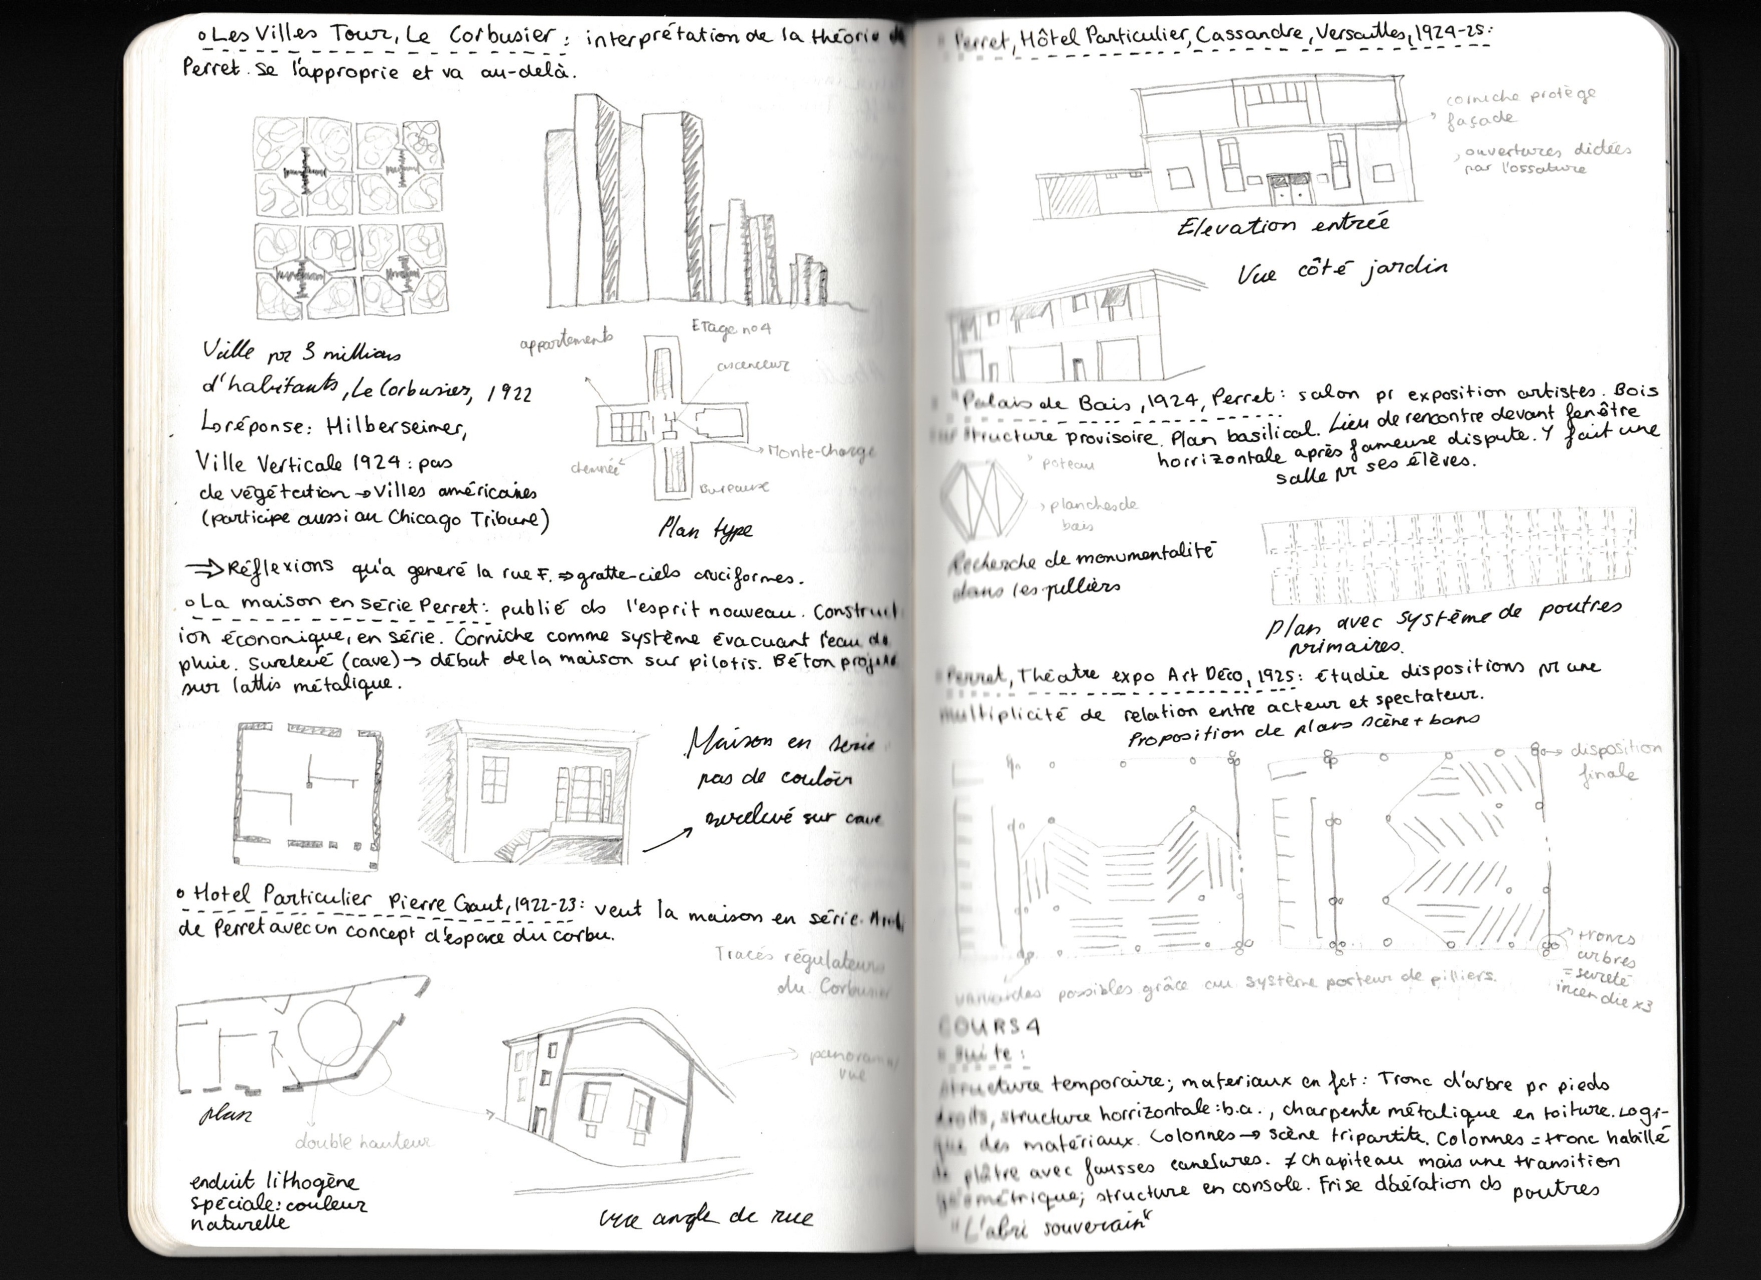 Les Villes Tour, Le Corbusier : interprétation de la théorie de
Perret. Se l'approprie et va au-delà.
Ville pr 3 millions
d'habitants, Le Corbusier, 1922
↳réponse: Hilberseimer,
Ville Verticale 1924 : pas
de végétation → Villes américaines
(participe aussi au Chicago Tribune)
appartements
Etage no 4
ascenceur
Monte-charge
cheminée
Bureaux
Plan type
⇒ Réflexions qu'a generé la rue F. ⇒ gratte-ciels cruciformes.
La maison en série Perret : publié ds l'esprit nouveau. Construct
ion économique, en série. Corniche comme système évacuant l'eau de
pluie. Surelevé (cave) → début de la maison sur pilotis. Béton projeté
sur lattis métalique.
Maison en serie
pas de couloir
surelevé sur cave
Hotel Particulier Pierre Gaut, 1922-23 : veut la maison en série.
de Perret avec un concept d'espace du corbu.
Tracés régulateurs
du Corbusier
panorama/
vue
plan
double hauteur
enduit lithogène
spéciale: couleur
naturelle
vue angle de rue
Perret, Hôtel Particulier, Cassandre, Versailles, 1924-25 :
corniche protège
façade
ouvertures dictées
par l'ossature
Elevation entrée
Vue côté jardin
Palais de Bois, 1924, Perret : salon pr exposition artistes. Bois
sur structure provisoire. Plan basilical. Lieu de rencontre devant fenêtre
horrizontale après fameuse dispute. Y fait une
salle pr ses élèves.
poteau
planches de
bois
Recherche de monumentalité
dans les pilliers
Plan avec système de poutres
primaires.
Perret, Théatre expo Art Déco, 1925 : étudie dispositions pr une
multiplicité de relation entre acteur et spectateur.
Proposition de plans scène + bans
disposition
finale
troncs
arbres
= sureté
incendie x3
variantes possibles grâce au système porteur de pilliers.
COURS 4
Suite :
Structure temporaire; materiaux en fct : Tronc d'arbre pr pieds
droits, structure horrizontale : b.a., charpente métalique en toiture. Logi-
que des matériaux. Colonnes → scène tripartite. Colonnes = tronc habillé
de plâtre avec fausses canelures. ≠ chapiteau mais une transition
géométrique; structure en console. Frise d'aération ds poutres
"L'abri souverain"